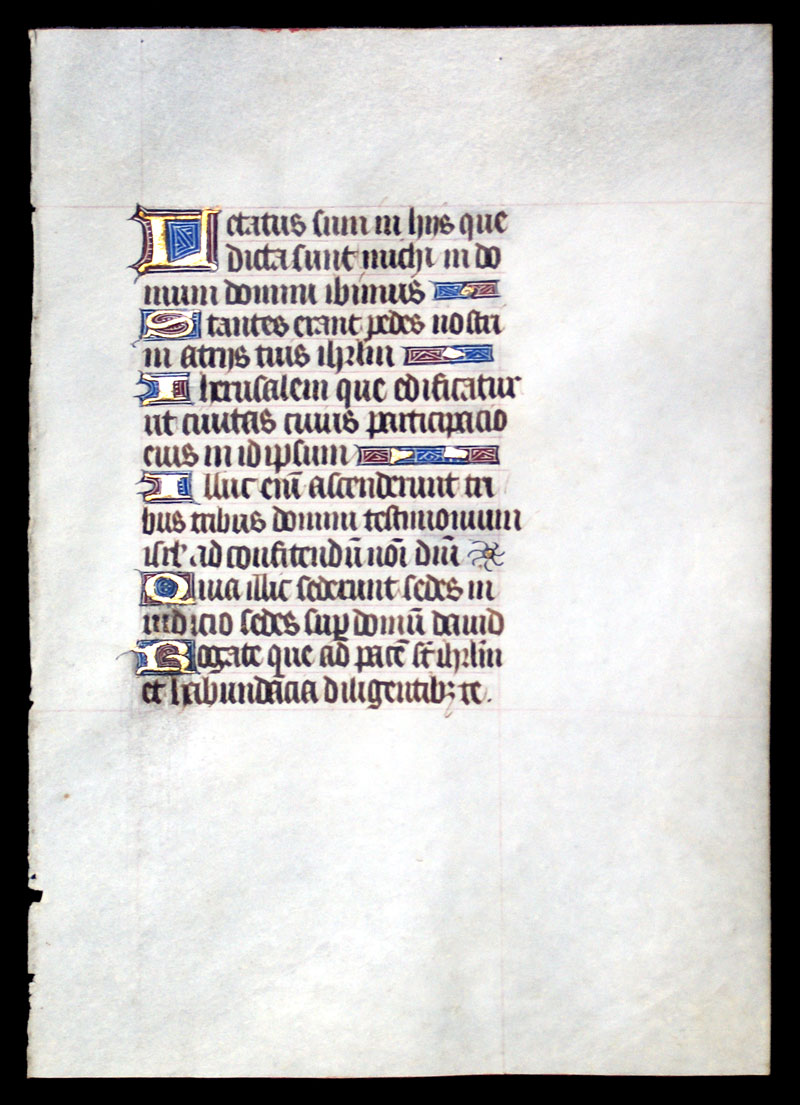 Letatus sum in hijs que
dicta sunt michi in do
mum domini ibimus
Stantes erant pedes nostri
in atrijs tuis ihrlm
Iherusalem que edificatur
ut civitas cuius participacio
eius in idipsum
Illuc eni̅ ascenderunt tri
bus tribus domini testimonium
isrl' ad confitendu̅ no̅i dni̅
Quia illic sederunt sedes in
iudicio sedes sup̱ domu̅ david
Rogate que ad pace̅ st̅ ihrlm
et habundacia diligentibꝫ te.